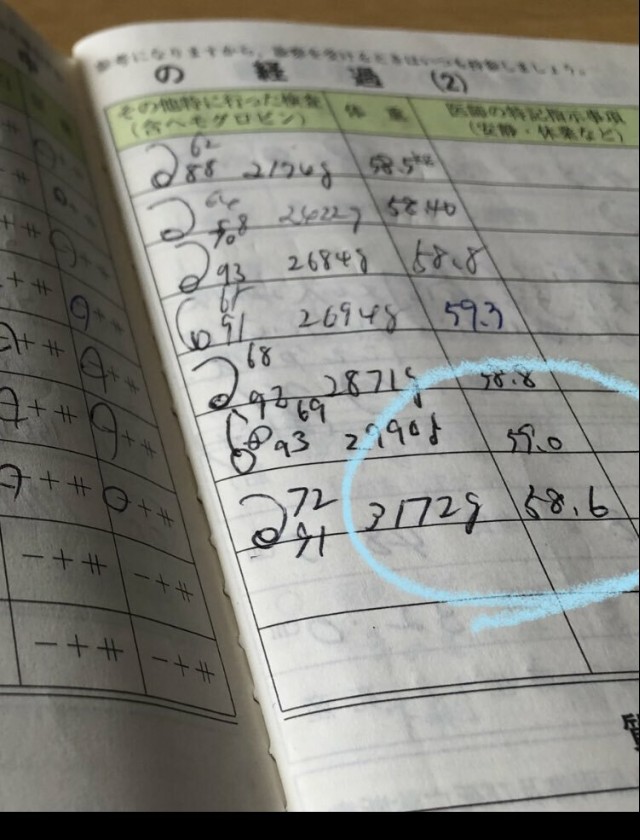 参考になりますから、診察を受けるときはいつも持参しましょう。
の 経 過 (2)
その他特に行った検査
(含ヘモグロビン)
体 重
医師の特記指示事項
(安静・休業など)
62
88 2174g 58.5kg
2422g 58.40
93 2684g 58.8
91 2694g 59.3
68
92 2871g 58.8
69
93 2990g 59.0
72
91 3172g 58.6
+ ⧺ + ⧺
+ ⧺ + ⧺
+ ⧺ + ⧺
+ ⧺ + ⧺
− + ⧺ − + ⧺
− + ⧺ − + ⧺